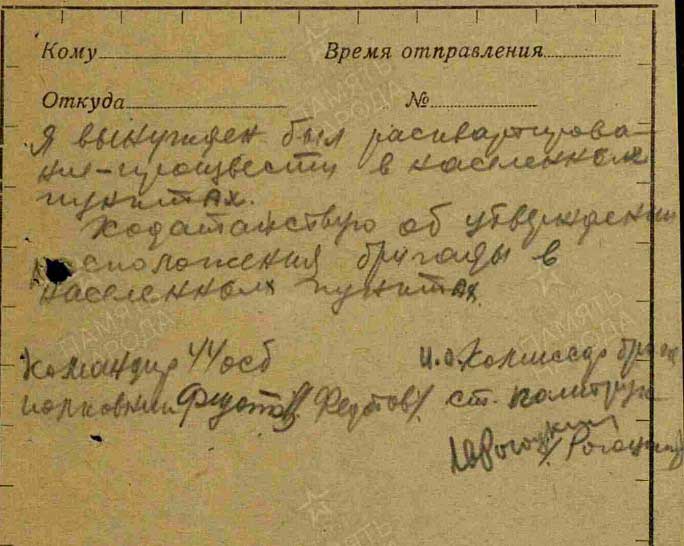 Кому Время отправления
Откуда №
Я вынужден был расквартирова-
ние произвести в населенном
пунктах.
Ходатайствую об утверждении
расположения бригады в
населенном пунктах
Командир 44 осб И.О. Комиссар бриг
полковник /Федотов/ ст. политрук